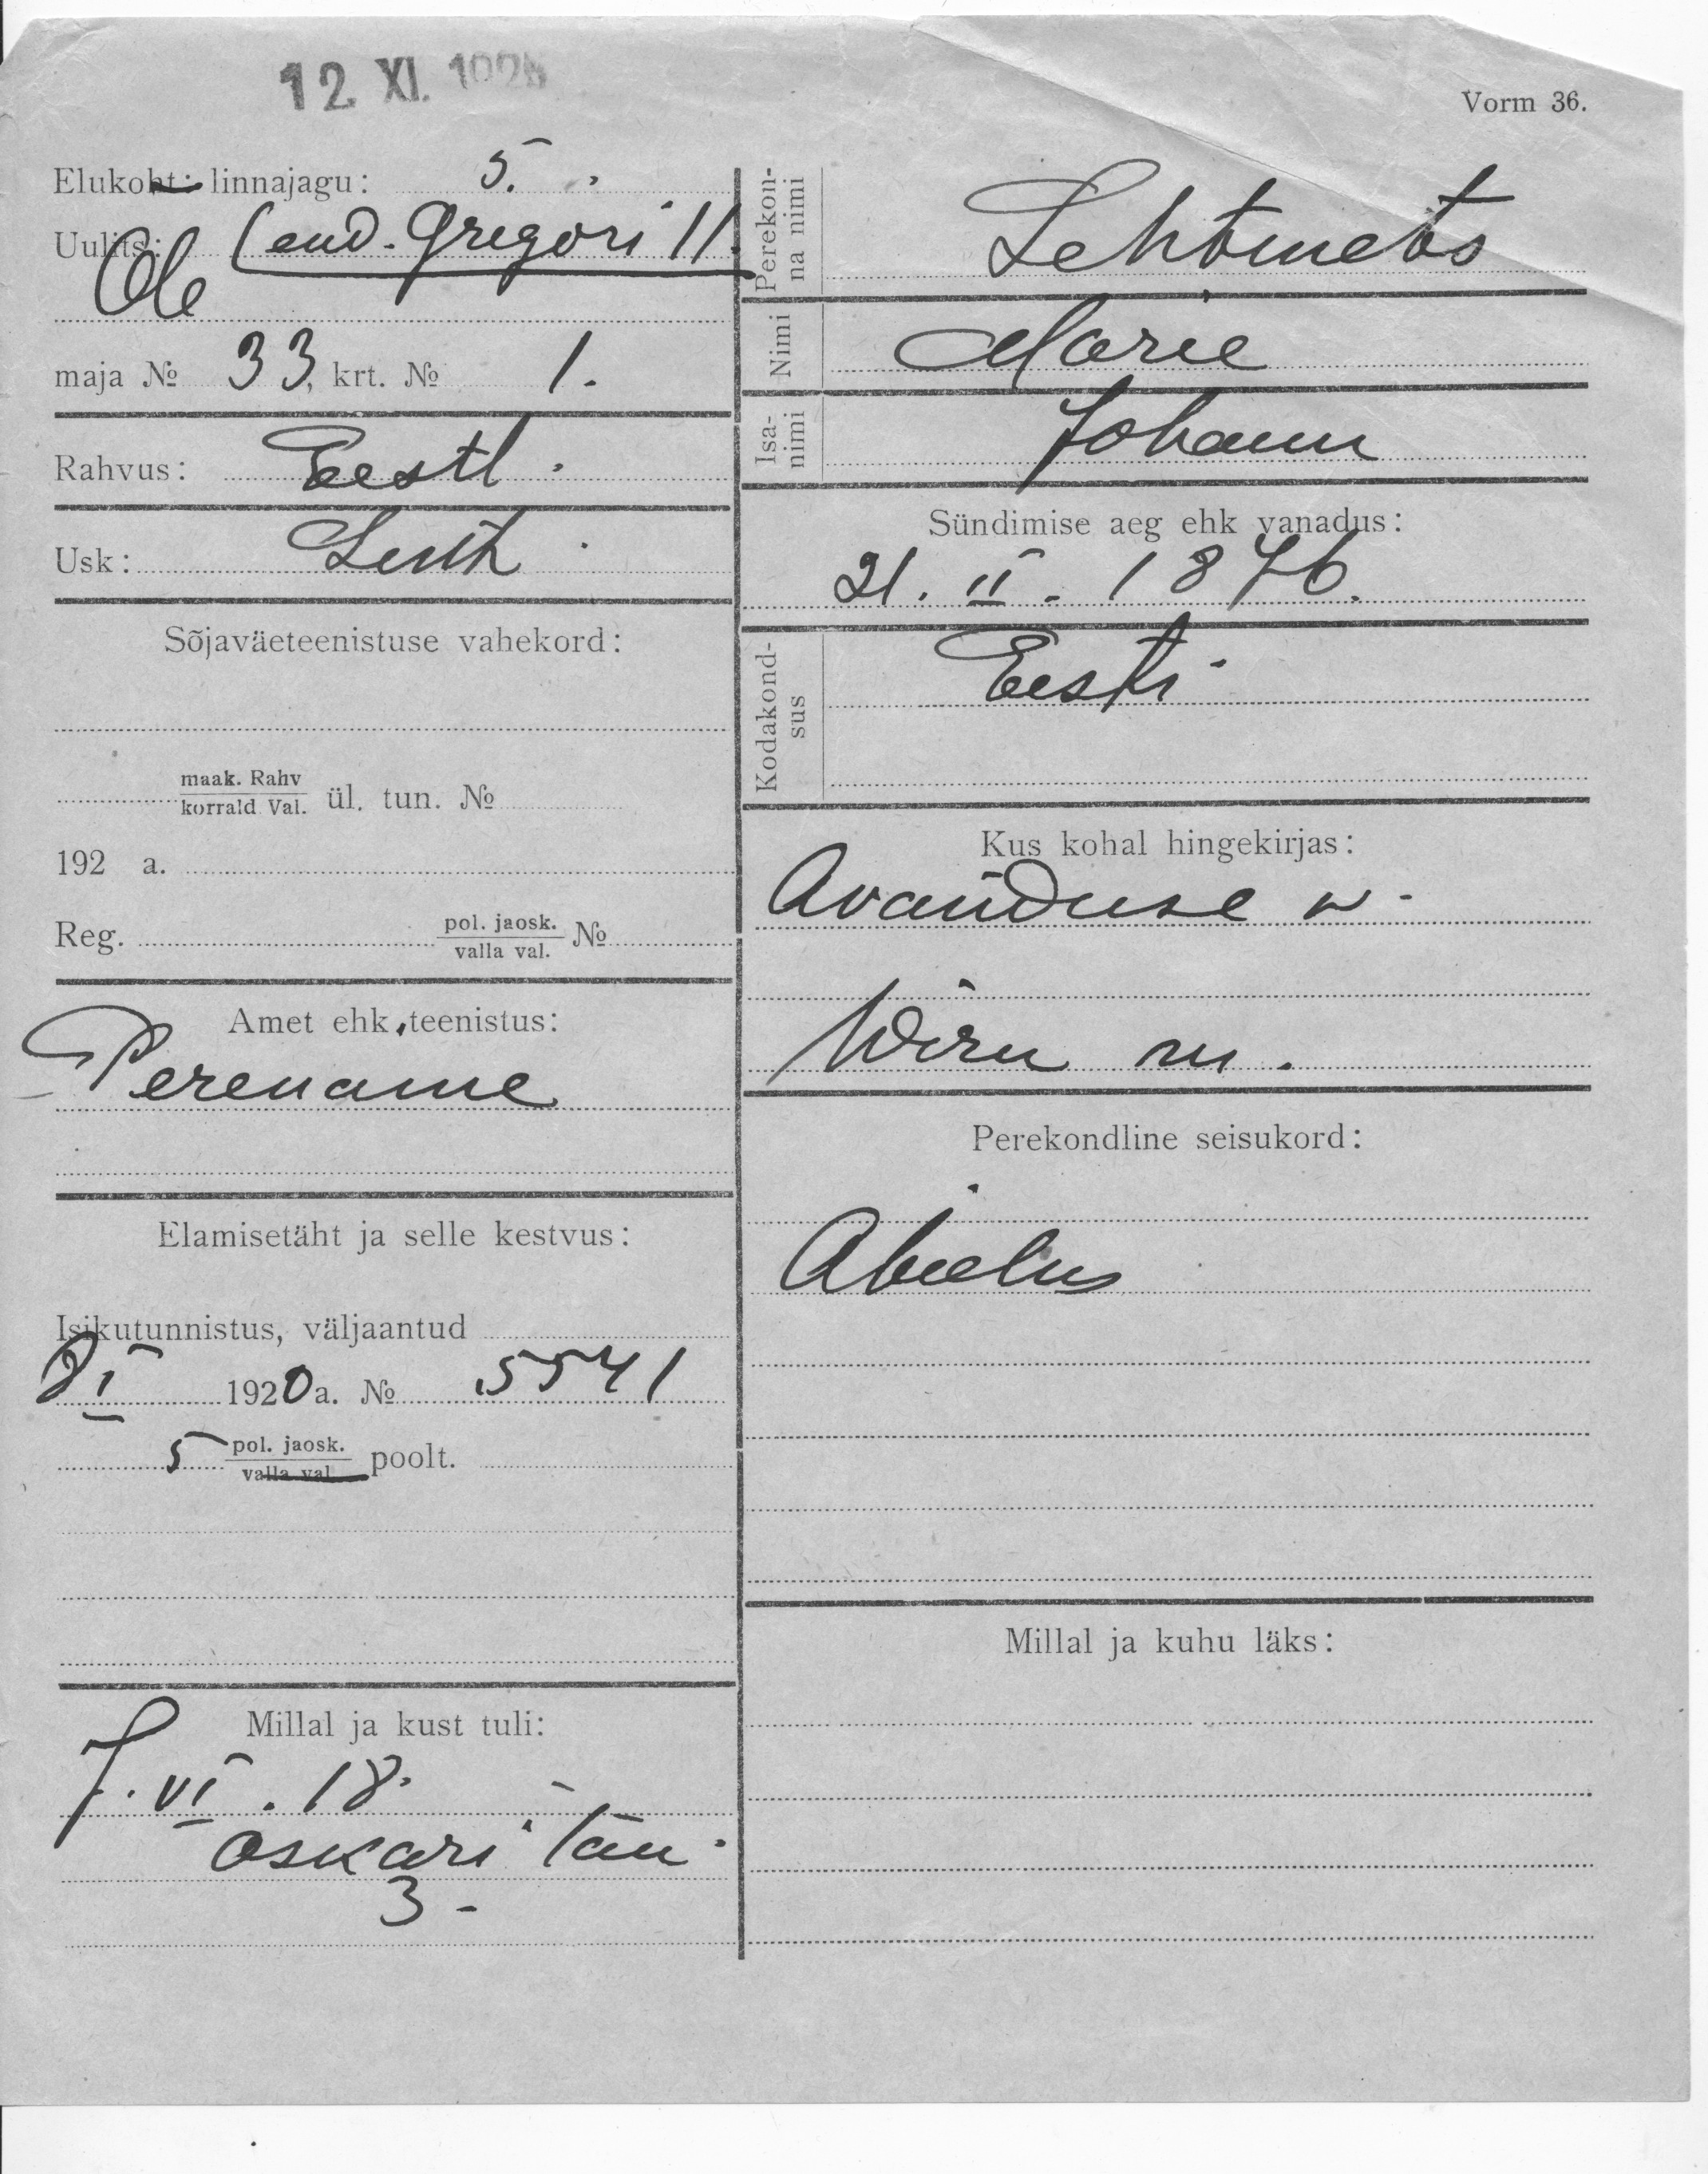 12 XI. 192
Vorm 36.
Elukoht: linnajagu: 5.
Uulits: (end. Gregori 11.
Ole
maja № 33, krt. № 1.
Rahvus: Eestl.
Usk: Luth
Sõjaväeteenistuse vahekord:
maak. Rahv
korrald Val. ül. tun. №
192 a.
Reg. pol. jaosk.
valla val. №
Amet ehk teenistus:
Perenaine
Elamisetäht ja selle kestvus:
Isikutunnistus, väljaantud
I 1920 a. № 5541
5 pol. jaosk.
valla val. poolt.
Millal ja kust tuli:
7. VI. 18.
Oskari tän.
3.
Perekon-
na nimi Lehtmets
Nimi Marie
Isa-
nimi Johann
Sündimise aeg ehk vanadus:
21. II. 1876.
Kodakond-
sus Eesti
Kus kohal hingekirjas:
Avanduse w.
Wiru m.
Perekondline seisukord:
Abielus
Millal ja kuhu läks: